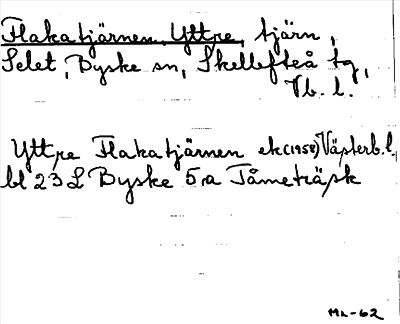 Flakatjärnen, Yttre, tjärn,
Selet, Byske sn, Skellefteå tg,
Vb. l.
Yttre Flakatjärnen ek(1958) Västerb. l.,
bl 23 L Byske 5,a Tåmeträsk
ML-62